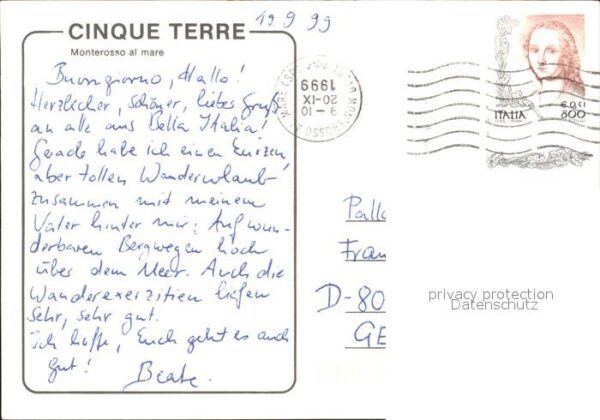 19.9 99
CINQUE TERRE
Monterosso al mare
Buongiorno, Hallo!
Herzlicher, schöner, liebes Gruß
an alle aus Bella Italia!
Gerade habe ich einen kurzen,
aber tollen Wanderurlaub
zusammen mit meinem
Vater hinter mir: Auf wun-
derbaren Bergwegen hoch
über dem Meer. Auch die
Wanderexerzitien liefen
sehr, sehr gut.
Ich hoffe, Euch geht es auch
gut!
Beate.
MONTEROSSO AL MARE
9 - 10
20-IX
1999
€ 0,41
ITALIA 800
Palla
Fran
D-80
GE
privacy protection
Datenschutz